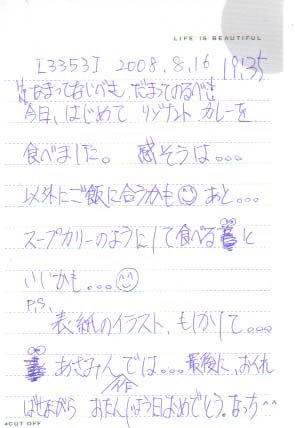 LIFE IS BEAUTIFUL
[3353] 2008.8.16 19:35
今日、はじめて リゾナント カレーを
食べました。 感そうは。。。
以外にご飯に合うかも あと。。。
スープカリーのようにして食べる と
いいかも。。。
P.S.
表紙のイラスト、もしかして。。。
あさみんでは。。。最後に、おくれ
ばせながら おたんじょう日おめでとう。なっち^^
CUT OFF